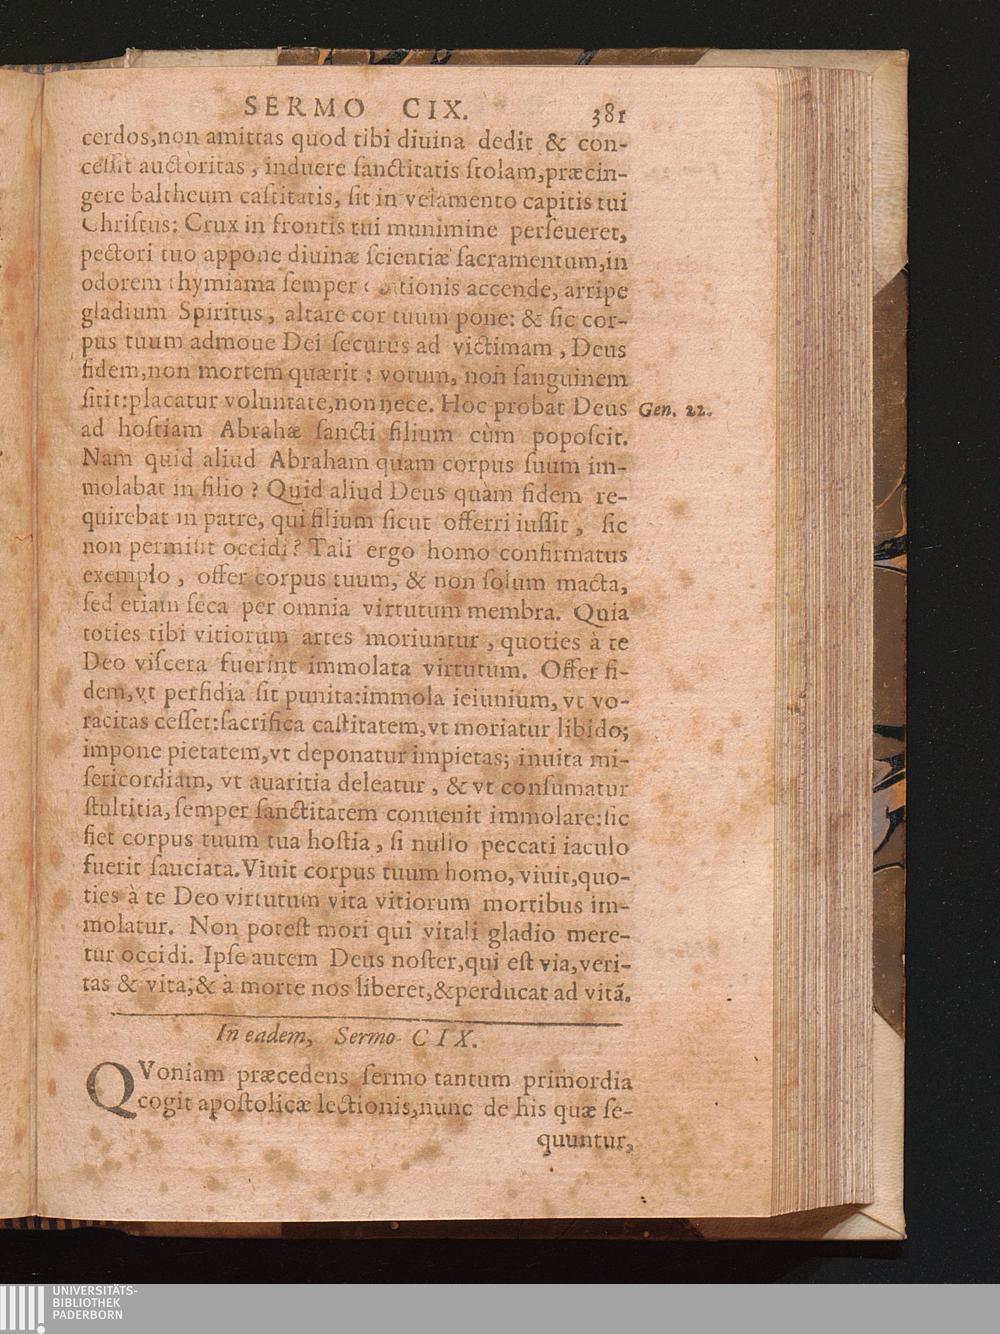 SERMO CIX. 381
cerdos,non amittas quod tibi diuina dedit & con-
cessit auctoritas, induere sanctitatis stolam,præcin-
gere baltheum castitatis, sit in velamento capitis tui
Christus: Crux in frontis tui munimine perseueret,
pectori tuo appone diuinæ scientiæ sacramentum,in
odorem thymiama semper accende, arripe
gladium Spiritus, altare cor tuum pone: & sic cor-
pus tuum admoue Dei securus ad victimam, Deus
fidem,non mortem quærit: votum, non sanguinem
sitit:placatur voluntate,non nece. Hoc probat Deus Gen. 22.
ad hostiam Abrahæ sancti filium cùm poposcit.
Nam quid aliud Abraham quam corpus suum im-
molabat in filio? Quid aliud Deus quàm fidem re-
quirebat in patre, qui filium sicut offerri iussit, sic
non permisit occidi? Tali ergo homo confirmatus
exemplo, offer corpus tuum, & non solum macta,
sed etiam seca per omnia virtutum membra. Quia
toties tibi vitiorum artes moriuntur, quoties à te
Deo viscera fuerint immolata virtutum. Offer fi-
dem,vt perfidia sit punita:immola ieiunium, vt vo-
racitas cesset:sacrifica castitatem,vt moriatur libido;
impone pietatem,vt deponatur impietas; inuita mi-
sericordiam, vt auaritia deleatur, & vt consumatur
stultitia, semper sanctitatem conuenit immolare:sic
fiet corpus tuum tua hostia, si nullo peccati iaculo
fuerit sauciata. Viuit corpus tuum homo, viuit,quo-
ties à te Deo virtutum vita vitiorum mortibus im-
molatur. Non potest mori qui vitali gladio mere-
tur occidi. Ipse autem Deus noster,qui est via,veri-
tas & vita,& à morte nos liberet,& perducat ad vitā.
In eadem, Sermo CIX.
QVoniam præcedens sermo tantum primordia
cogit apostolicæ lectionis,nunc de his quæ se-
quuntur,
UNIVERSITÄTS-
BIBLIOTHEK
PADERBORN